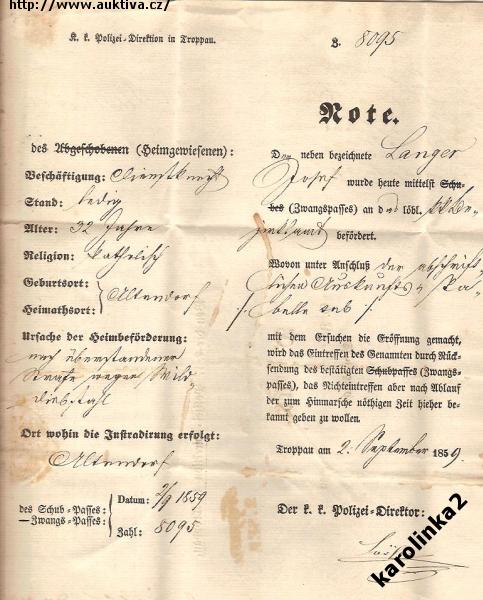 http://www.auktiva.cz/
K. k. Polizei-Direktion in Troppau.
Z. 8095
Note.
des Abgeschobenen (Heimgewiesenen):
Beschäftigung: Dienstknecht
Stand: ledig
Alter: 32 Jahre
Religion: katholisch
Geburtsort:
Heimathsort:
Altendorf
Ursache der Heimbeförderung:
nach überstandener
Strafe wegen Wild-
diebstahl
Ort wohin die Instradirung erfolgt:
Altendorf
des Schub-Passes:
—Zwangs-Passes:
Datum: 2/9 1859
Zahl: 8095
Der neben bezeichnete Langer
Josef wurde heute mittelst Schu-
bes (Zwangspasses) an das löbl. kk Be-
zirksamt befördert.
Wovon unter Anschluß der abschrift-
lichen Auskunfts
mit dem Ersuchen die Eröffnung gemacht,
wird das Eintreffen des Genannten durch Rück-
sendung des bestätigten Schubpasses (Zwangs-
passes), das Nichteintreffen aber nach Ablauf
der zum Hinmarsche nöthigen Zeit hieher be-
kannt geben zu wollen.
Troppau am 2. September 1859.
Der k. k. Polizei-Direktor:
karolinka2